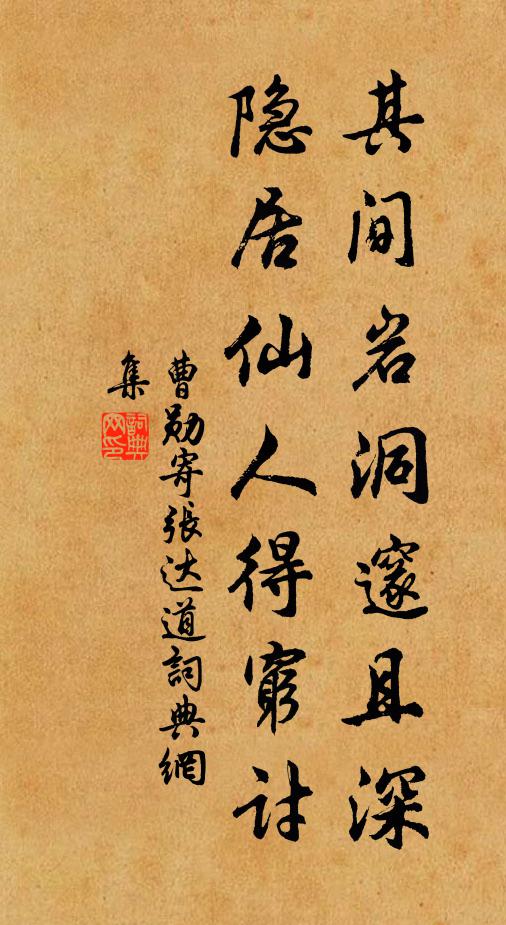 其间岩洞邃且深
隐居仙人得窮讨
曹勋寄張达道詞典網
集
詞典网印